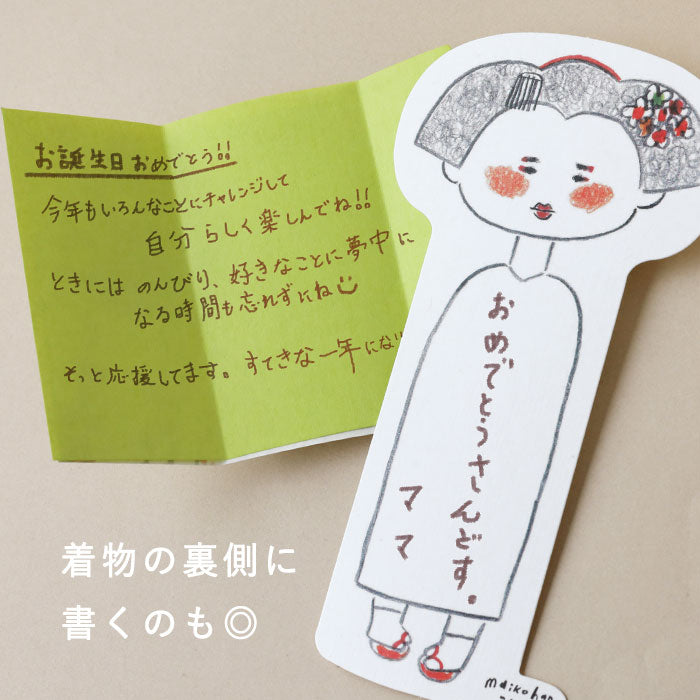 お誕生日おめでとう!!
今年もいろんなことにチャレンジして
自分らしく楽しんでね!!
ときには のんびり、好きなことに夢中に
なる時間も忘れずにね
そっと応援してます。すてきな一年にな
おめでとうさんどす。
ママ
着物の裏側に
書くのも◎